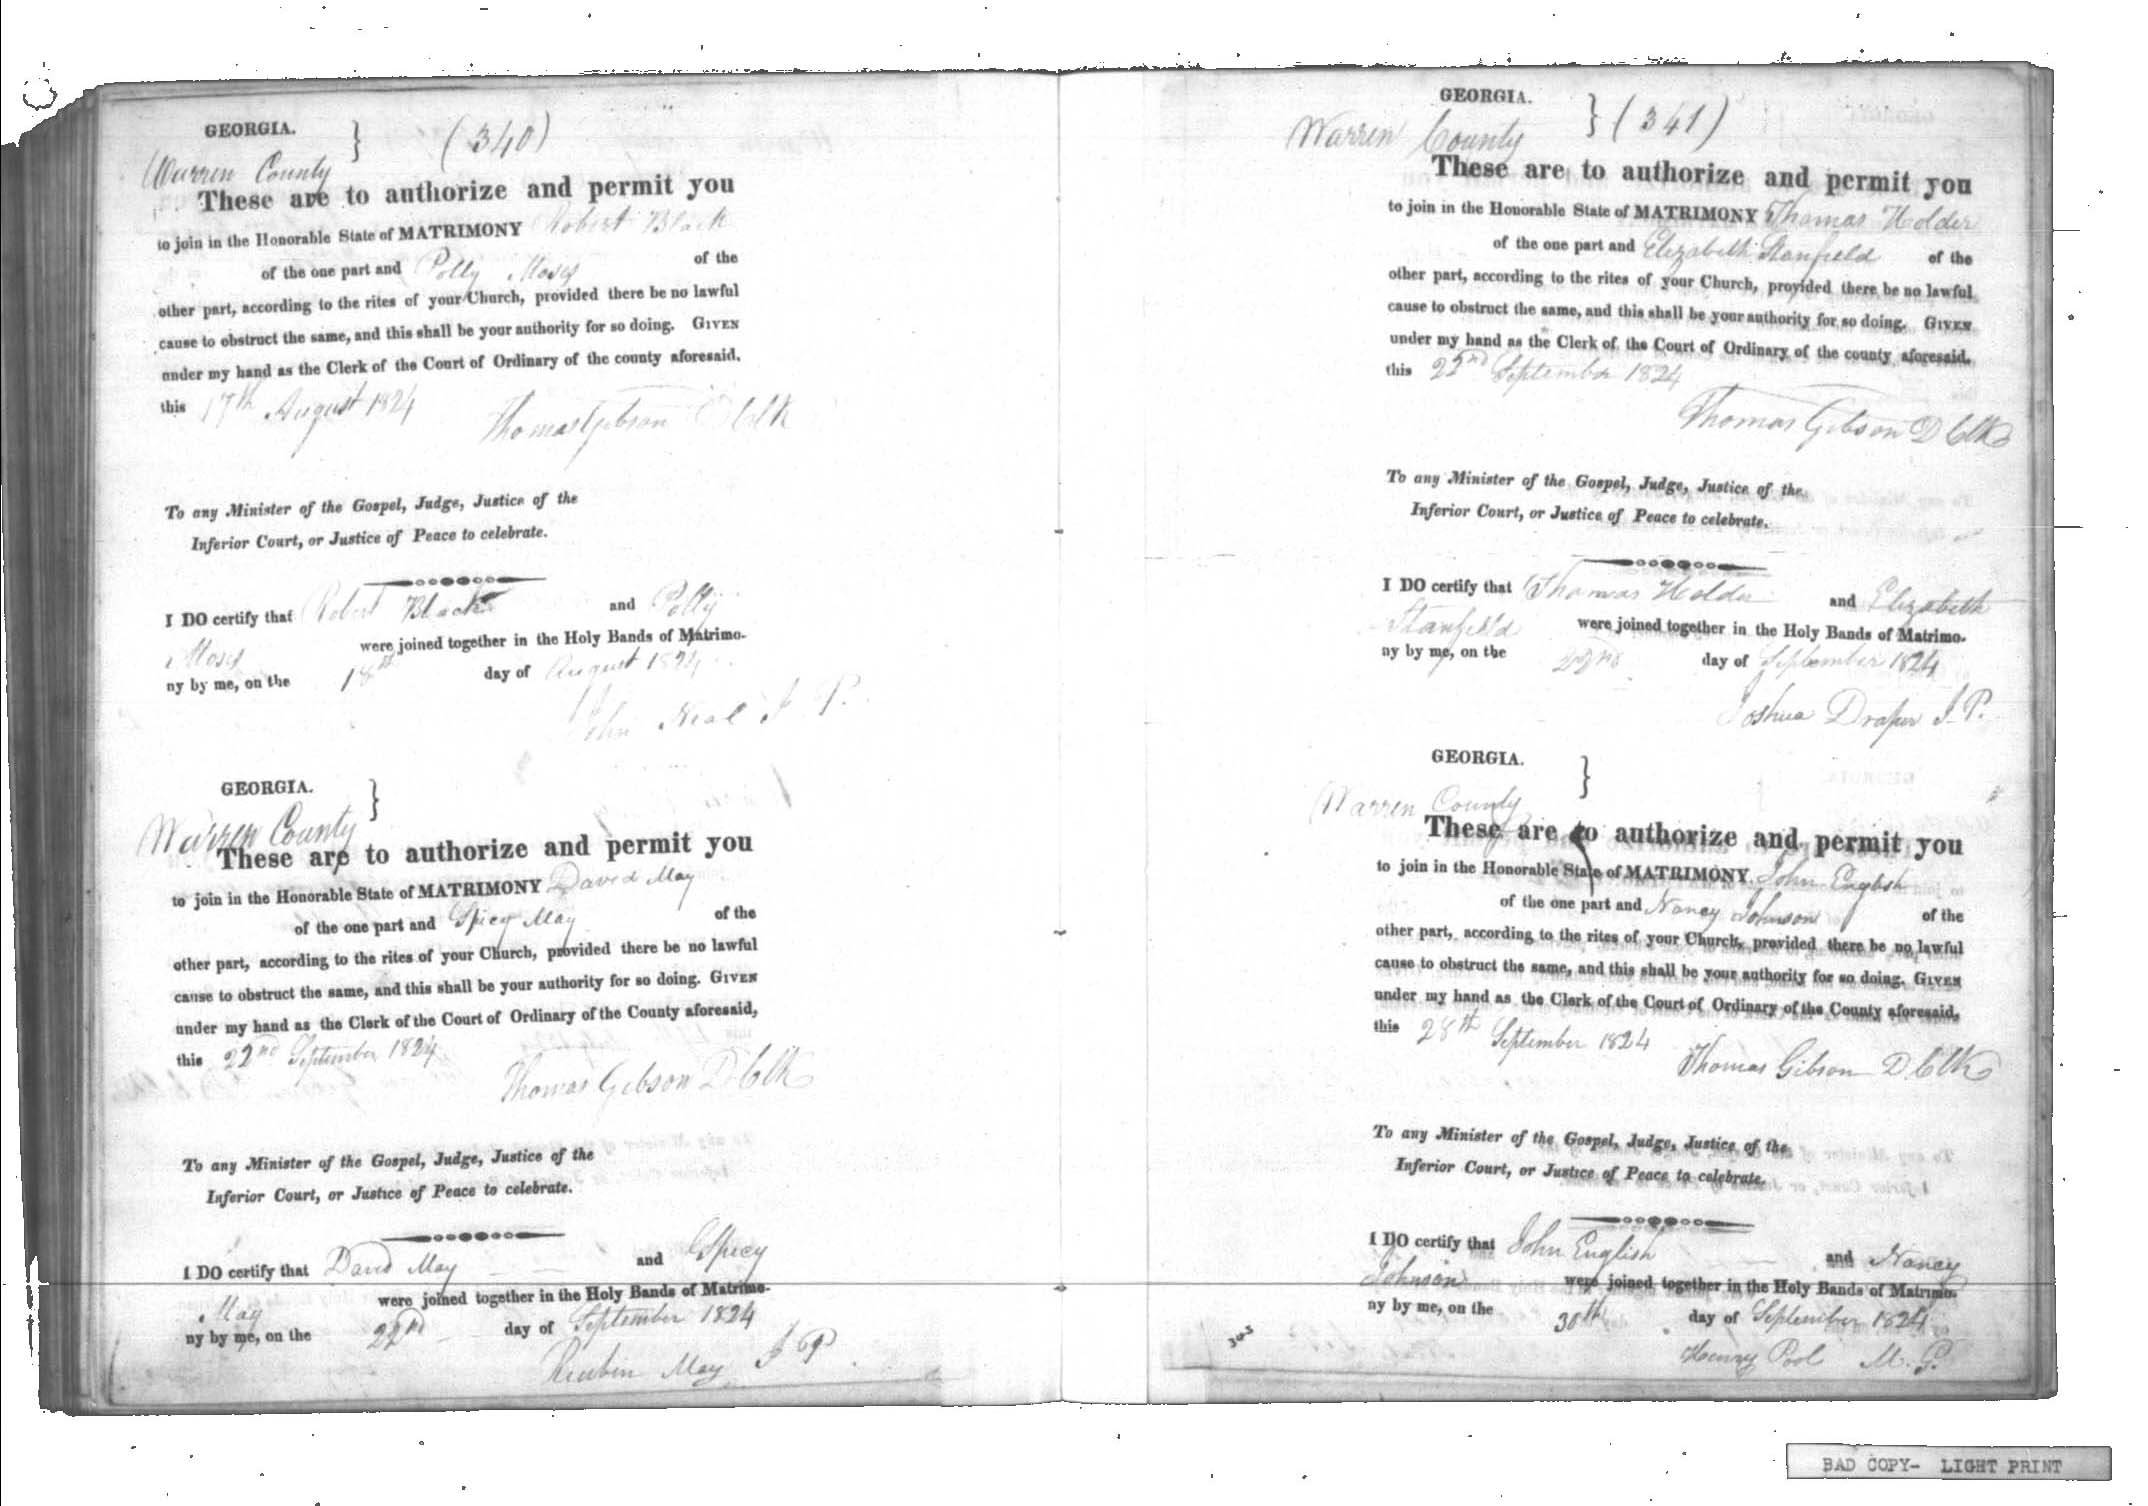 GEORGIA. } (340)
Warren County
These are to authorize and permit you
to join in the Honorable State of MATRIMONY Robert Black
of the one part and Polly Moses of the
other part, according to the rites of your Church, provided there be no lawful
cause to obstruct the same, and this shall be your authority for so doing. GIVEN
under my hand as the Clerk of the Court of Ordinary of the county aforesaid.
this 17th August 1824
Thomas Gibson D Clk
To any Minister of the Gospel, Judge, Justice of the
Inferior Court, or Justice of Peace to celebrate.
I DO certify that Robert Black and Polly
Moses were joined together in the Holy Bands of Matrimo-
ny by me, on the 18th day of August 1824
John Neal J P.
GEORGIA. }
Warren County
These are to authorize and permit you
to join in the Honorable State of MATRIMONY David May
of the one part and Spicy May of the
other part, according to the rites of your Church, provided there be no lawful
cause to obstruct the same, and this shall be your authority for so doing. GIVEN
under my hand as the Clerk of the Court of Ordinary of the County aforesaid,
this 22nd September 1824
Thomas Gibson D Clk
To any Minister of the Gospel, Judge, Justice of the
Inferior Court, or Justice of Peace to celebrate.
I DO certify that David May and Spicy
May were joined together in the Holy Bands of Matrimo-
ny by me, on the 22nd day of September 1824
Reubin May J P
GEORGIA. } (341)
Warren County
These are to authorize and permit you
to join in the Honorable State of MATRIMONY Thomas Holder
of the one part and Elizabeth Stanfield of the
other part, according to the rites of your Church, provided there be no lawful
cause to obstruct the same, and this shall be your authority for so doing. GIVEN
under my hand as the Clerk of the Court of Ordinary of the county aforesaid.
this 22nd September 1824
Thomas Gibson D Clk
To any Minister of the Gospel, Judge, Justice of the
Inferior Court, or Justice of Peace to celebrate.
I DO certify that Thomas Holder and Elizabeth
Stanfield were joined together in the Holy Bands of Matrimo-
ny by me, on the 22nd day of September 1824
Joshua Draper J. P.
GEORGIA. }
Warren County
These are to authorize and permit you
to join in the Honorable State of MATRIMONY John English
of the one part and Nancy Johnson of the
other part, according to the rites of your Church, provided there be no lawful
cause to obstruct the same, and this shall be your authority for so doing. GIVEN
under my hand as the Clerk of the Court of Ordinary of the County aforesaid,
this 28th September 1824
Thomas Gibson D. Clk
To any Minister of the Gospel, Judge, Justice of the
Inferior Court, or Justice of Peace to celebrate.
I DO certify that John English and Nancy
Johnson were joined together in the Holy Bands of Matrimo-
ny by me, on the 30th day of September 1824
Henry Pool M. G.
BAD COPY- LIGHT PRINT